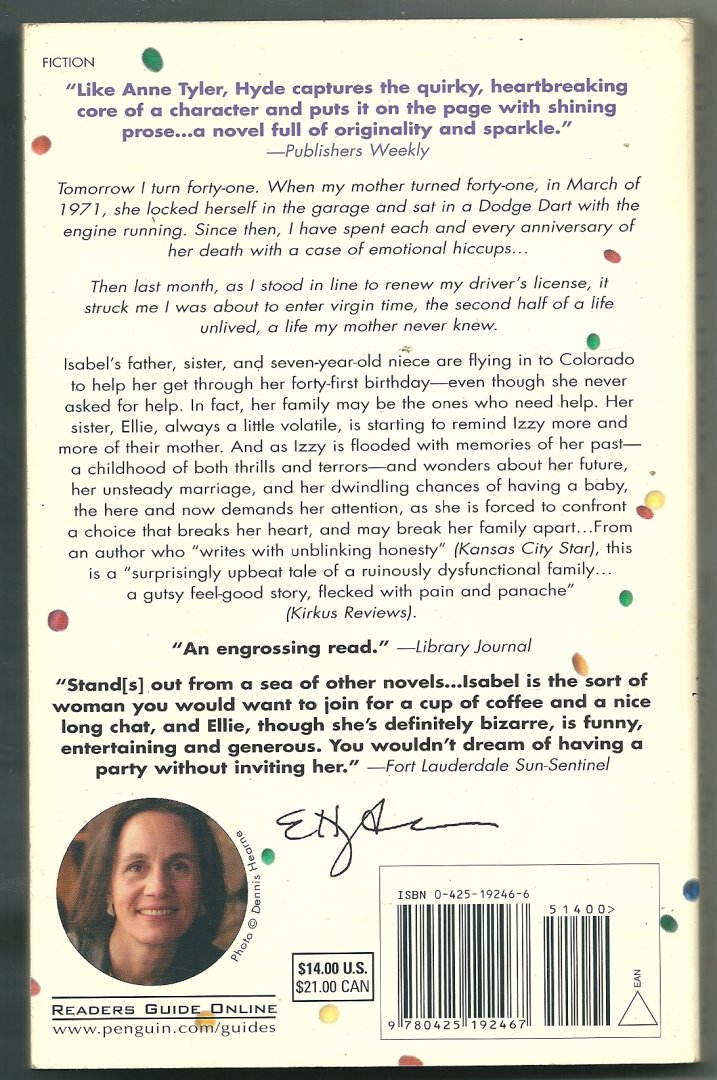 FICTION
“Like Anne Tyler, Hyde captures the quirky, heartbreaking
core of a character and puts it on the page with shining
prose...a novel full of originality and sparkle.”
—Publishers Weekly
Tomorrow I turn forty-one. When my mother turned forty-one, in March of
1971, she locked herself in the garage and sat in a Dodge Dart with the
engine running. Since then, I have spent each and every anniversary of
her death with a case of emotional hiccups...
Then last month, as I stood in line to renew my driver’s license, it
struck me I was about to enter virgin time, the second half of a life
unlived, a life my mother never knew.
Isabel’s father, sister, and seven-year-old niece are flying in to Colorado
to help her get through her forty-first birthday—even though she never
asked for help. In fact, her family may be the ones who need help. Her
sister, Ellie, always a little volatile, is starting to remind Izzy more and
more of their mother. And as Izzy is flooded with memories of her past—
a childhood of both thrills and terrors—and wonders about her future,
her unsteady marriage, and her dwindling chances of having a baby,
the here and now demands her attention, as she is forced to confront
a choice that breaks her heart, and may break her family apart...From
an author who “writes with unblinking honesty” (Kansas City Star), this
is a “surprisingly upbeat tale of a ruinously dysfunctional family...
a gutsy feel-good story, flecked with pain and panache”
(Kirkus Reviews).
“An engrossing read.” —Library Journal
“Stand[s] out from a sea of other novels...Isabel is the sort of
woman you would want to join for a cup of coffee and a nice
long chat, and Ellie, though she’s definitely bizarre, is funny,
entertaining and generous. You wouldn’t dream of having a
party without inviting her.” —Fort Lauderdale Sun-Sentinel
Photo © Dennis Hearne
READERS GUIDE ONLINE
www.penguin.com/guides
$14.00 U.S.
$21.00 CAN
ISBN 0-425-19246-6
51400>
9 780425 192467
EAN